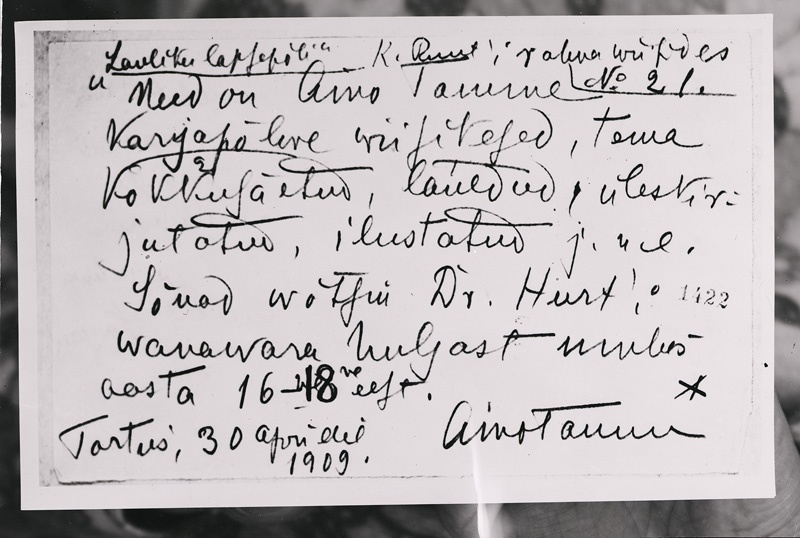 "Lauliku lapsepõli" K. Ruut'i rahva wiisides
" Need on Aino Tamme No 21.
Karjapõlwe wiisikesed, tema
kokkusäetud, lauldud, ülestkir-
jutatud, ilustatud j. n. e.
Sõnad wõtsin Dr. Hurt'i 1422
wanawara hulgast umbes
aasta 16-18 ne eest. x
Tartus, 30 aprillil AinoTamm
1909.